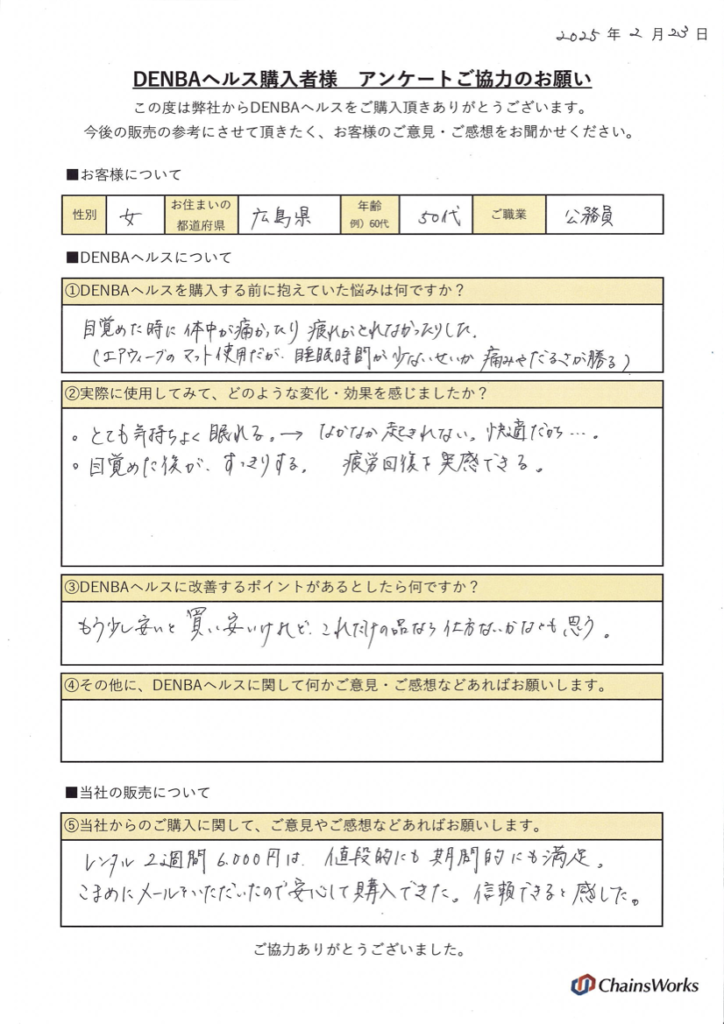 2025 年 2 月 23 日
DENBAヘルス購入者様 アンケートご協力のお願い
この度は弊社からDENBAヘルスをご購入頂きありがとうございます。
今後の販売の参考にさせて頂きたく、お客様のご意見・ご感想をお聞かせください。
■お客様について
性別 女 お住まいの都道府県 広島県 年齢 例）60代 50代 ご職業 公務員
■DENBAヘルスについて
①DENBAヘルスを購入する前に抱えていた悩みは何ですか？
目覚めた時に体中が痛かったり疲れがとれなかったりした。
（エアウィーヴのマット使用だが、睡眠時間が少ないせいか痛みやだるさが勝る）
②実際に使用してみて、どのような変化・効果を感じましたか？
。とても気持ちよく眠れる。→ なかなか起きれない。快適だから…。
。目覚めた後が、すっきりする。 疲労回復を実感できる。
③DENBAヘルスに改善するポイントがあるとしたら何ですか？
もう少し安いと買い安いけれど、これだけの品なら仕方ないかなとも思う。
④その他に、DENBAヘルスに関して何かご意見・ご感想などあればお願いします。
■当社の販売について
⑤当社からのご購入に関して、ご意見やご感想などあればお願いします。
レンタル 2週間 6,000円は、値段的にも期間的にも満足。
こまめにメールをいただいたので安心して購入できた。信頼できると感じた。
ご協力ありがとうございました。
ChainsWorks